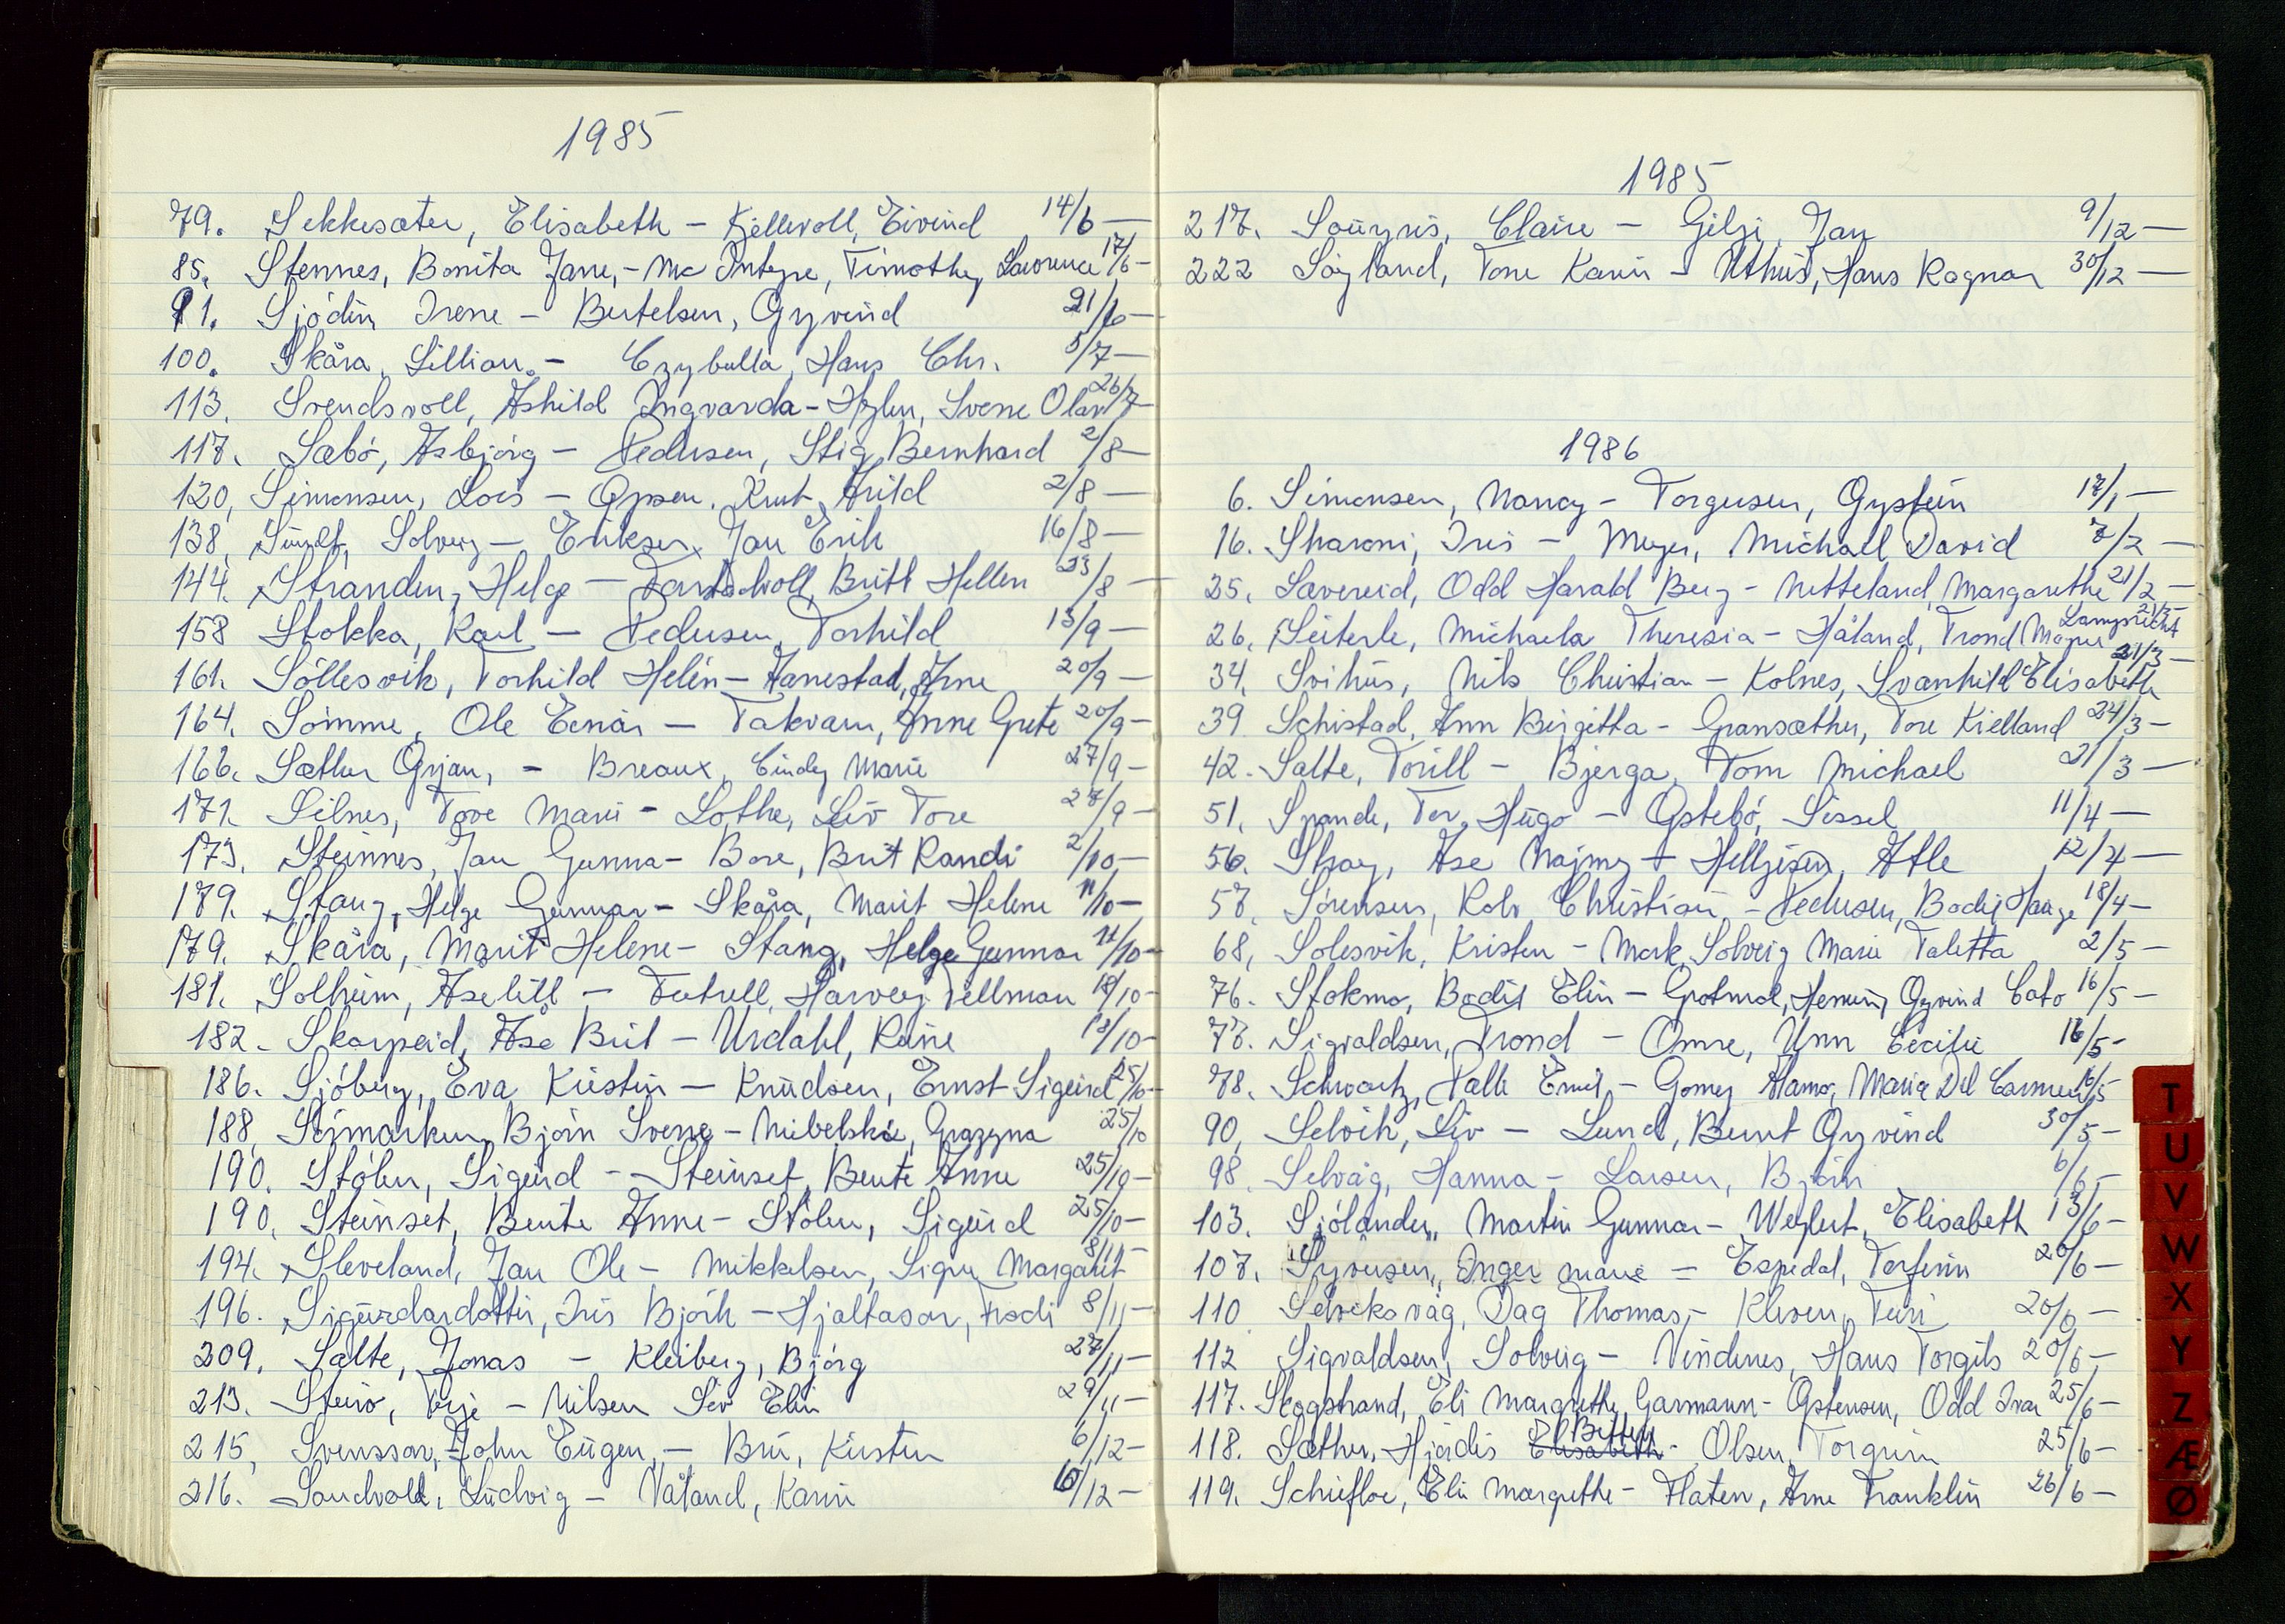 1985
79. Sekkesæter, Elisabeth - Kjellevoll, Eivind 14/6 -
85. Stennes, Bonita Jane, - Mc Intyre, Timothy Lawrence 17/6 -
91. Sjödin Irene - Bertelsen, Øyvind 21/6 -
100. Skåra, Lillian. - Czybulla, Hans Chr. 5/7 -
113. Svendsvoll, Åshild Ingvarda - Hylen, Sverre Olav 26/7 -
117. Sæbø, Asbjørg - Pedersen, Stig Bernhard 2/8 -
120, Simonsen, Lois - Opsen, Knut Arild 2/8 -
138, Sundt, Solveig - Eriksen, Jan Erik 16/8 -
144. Stranden, Helge - Britt Hellen 23/8 -
158 Stokka, Karl - Pedersen, Torhild 13/9 -
161. Söllesvik, Torhild Helén - Hanestad, Arne 20/9 -
164. Sømme, Ole Einar - Takvam, Anne Grete 20/9 -
166. Sæther Ørjan, - Breaux, Cindy Marie 27/9 -
171. Silnes, Tove Marie - Lothe, Leiv Tore 27/9 -
173. Steinnes, Jan Gunnar - Bore, Brit Randi 2/10 -
179. Stang, Helge Gunnar - Skåra, Marit Helene 11/10 -
179. Skåra, Marit Helene - Stang, Helge Gunnar 11/10 -
181. Solheim, Åselill - Futrell, Harvey Tellman 18/10 -
182. Skarpeid, Åse Brit - Urdahl, Reine 18/10 -
186. Sjöberg, Eva Kristin - Knudsen, Ernst Sigurd 25/10 -
188, Sörmarken, Bjørn Sverre - Grazyna 25/10
190. Stølen, Sigurd - Steinset, Bente Anne 25/10 -
190. Steinset, Bente Anne - Stølen, Sigurd 25/10 -
194. Sleveland, Jan Ole - Mikkelsen, Signe Margaret 8/11 -
196. Sigurdardottir, Iris Björk - Hjaltason, Frodi 8/11 -
209. Salte, Jonas - Kleiberg, Bjørg 27/11 -
213. Steirö, Terje - Nilsen Liv Elin 29/11 -
215, Svensson, John Eugen, - Bru, Kirsten 6/12 -
216. Sandvold, Ludvig - Våland, Karin 6/12 -
1985
217. Souyris, Claire - Gilje, Jan 9/12 -
222 Søyland, Tone Karin - Uthus, Hans Ragnar 30/12 -
1986
6. Simonsen, Nancy - Torgersen, Øystein 17/1 -
16. Sharoni, Iris - Meyer, Michael David 7/2 -
25. Sævereid, Odd Harald Berg - Netteland, Margarethe 21/2 -
26. Seiterle, Michaela Theresia - Håland, Trond Magne Lamprecht 21/2 -
34. Svihus, Nils Christian - Kolnes, Svanhild Elisabeth 21/3 -
39 Schistad, Ann Birgitta - Gransæther, Tore Kielland 24/3 -
42. Salte, Torill - Bjerga, Tom Michael 21/3 -
51, Spande, Tor Hugo - Østebø, Sissel 11/4 -
56. Åse Najmy - Helljesen, Atle 12/4 -
57. Sørensen, Rolv Christian - Pedersen, Bodil Hauge 18/4 -
68, Solesvik, Kristen - Mork, Solveig Marie Taletta 2/5 -
76. Stokmo, Bodil Elin - Grotmol, Henning Øyvind Cato 16/5 -
77. Sigvaldsen, Trond - Omre, Unn Cecilie 16/5 -
78. Schwartz, Palle Emil - Gomez Alamo, Maria Del Carmen 16/5
90, Selvik, Liv - Lund, Bernt Øyvind 30/5 -
98. Selvåg, Hanna - Larsen, Bjørn 6/6 -
103. Sjölander, Martin Gunnar - Weglert, Elisabeth 13/6 -
107. Syversen, Inger Marie - Espedal, Torfinn 20/6 -
110 Selvåg, Dag Thomas, - Kleven, Turi 20/6 -
112 Sigvaldsen, Solveig - Vindenes, Hans Torgils 20/6 -
117. Skogstrand, Eli Margrethe Garmann - Østensen, Odd Ivar 25/6 -
118. Sæther, Hjørdis Elisabeth Betten - Olsen, Torgrim 25/6 -
119. Schiefloe, Elin Margrethe - Flaten, Arne Franklin 26/6 -
T
U
V
W
X
Y
Z
Æ
Ø